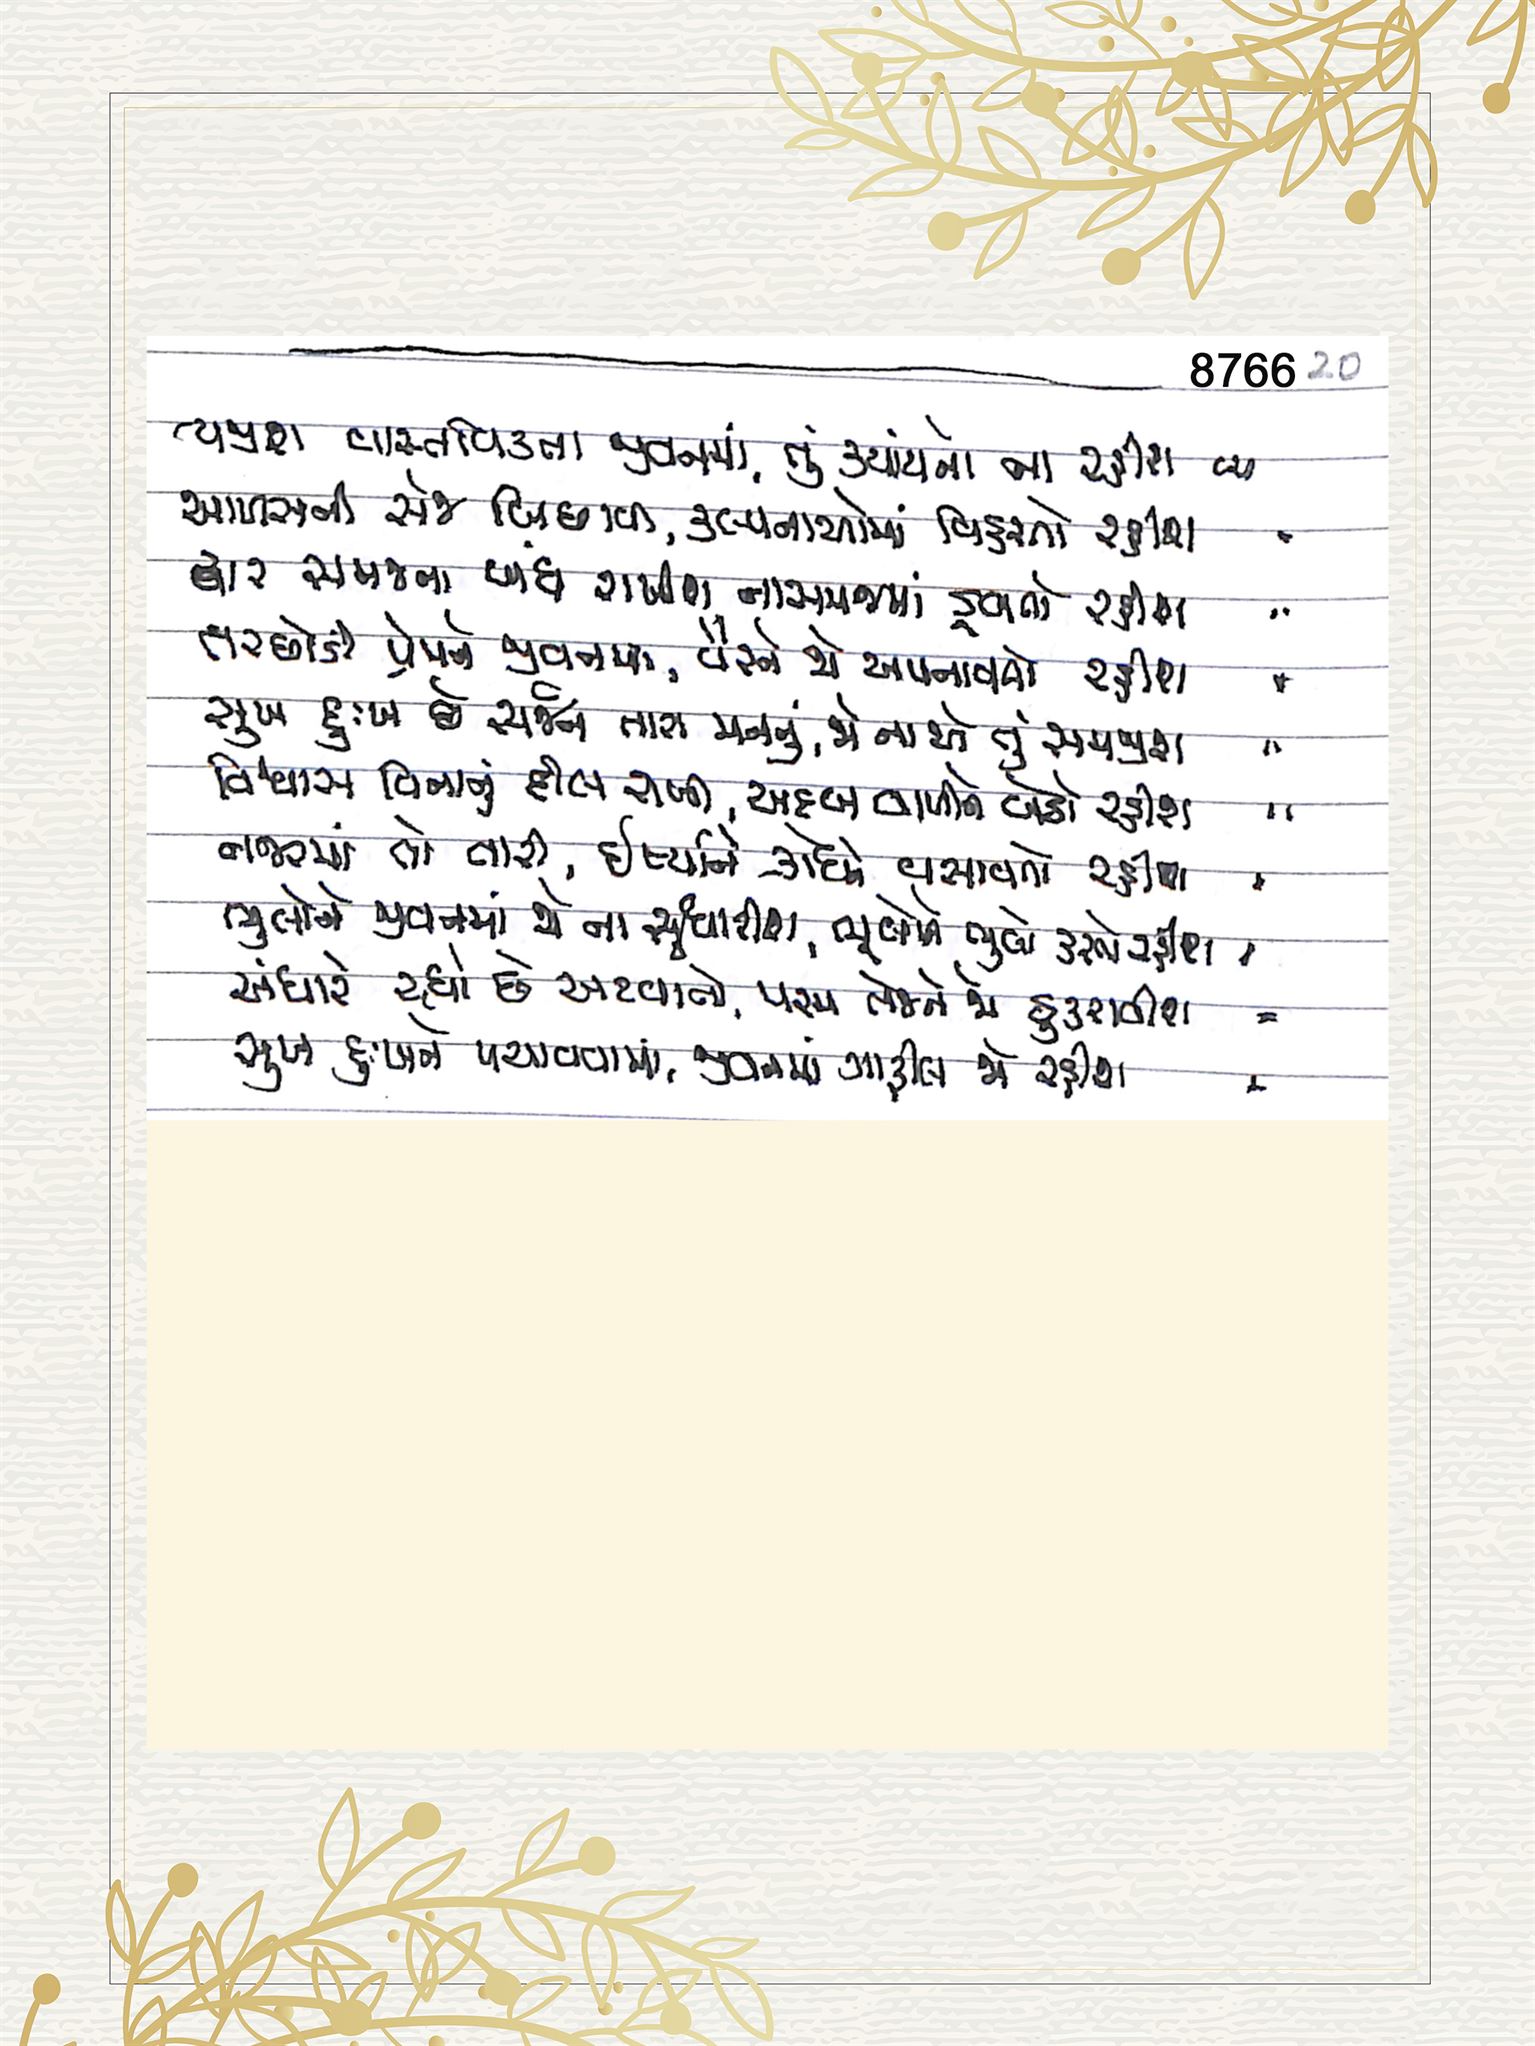 8766 20
ત્યજીશ વાસ્તવિકતા જીવનમાં, તું ક્યાંયનો ના રહીશ
આળસની સેજ બિછાવી, કલ્પનાઓમાં વિહરતો રહીશ "
દ્વાર સમજના બંધ રાખીશ, નાસમજમાં ડૂબતો રહીશ "
તરછોડી પ્રેમને જીવનમાં, વૈરને જો અપનાવતો રહીશ "
સુખ દુઃખ છે સર્જન તારા મનનું, જો ના એ તું સમજીશ "
વિશ્વાસ વિનાનું દીલ રાખી, અદબ વાળીને બેઠો રહીશ "
નજરમાં તો તારી, ઈર્ષ્યાને ક્રોધને વસાવતો રહીશ "
ભુલોને જીવનમાં જો ના સુધારીશ, ભૂલોને ભુલો કરતો રહીશ "
અંધારે રહ્યો છે અટવાતો, પરમ તેજને જો ઠુકરાવીશ "
સુખ દુઃખને પચાવવામાં, જીવનમાં ગાફીલ જો રહીશ "